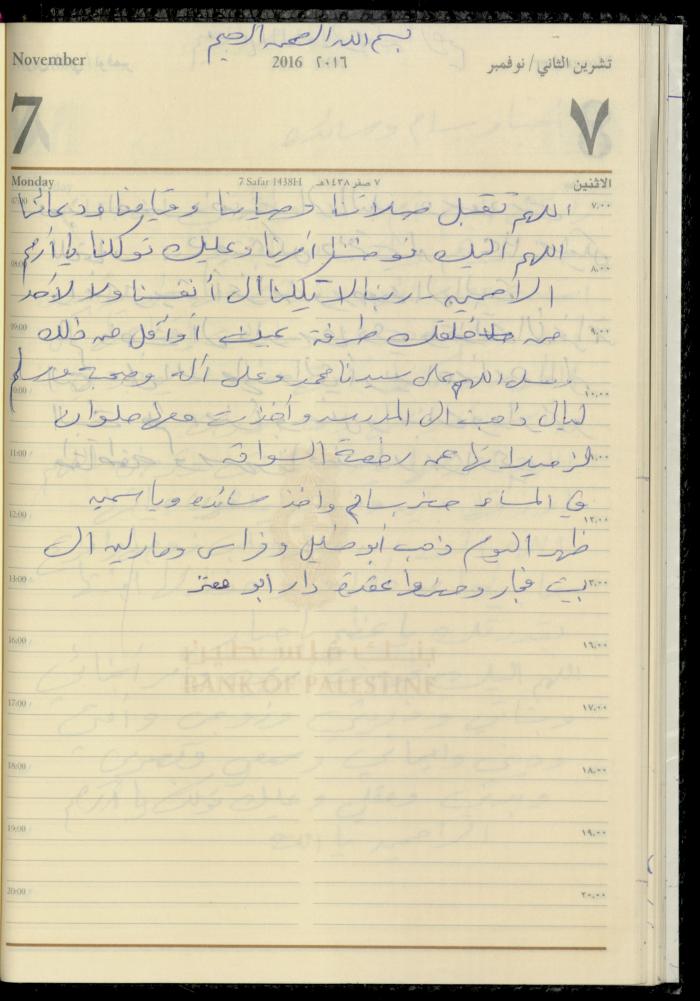 بسم الله الرحمن الرحيم
November 2016 ٢٠١٦ تشرين الثاني / نوفمبر
7 ٧
Monday 7 Safar 1438H ٧ صفر ١٤٣٨هـ الاثنين
اللهم تقبل صلاتنا وصيامنا وقيامنا ودعائنا
07:00 ٧,٠٠
اللهم اليك فوضنا أمرنا وعليك توكلنا يا أرحم
08:00 ٨,٠٠
الراحمين . ربنا لا تكلنا الى أنفسنا ولا لأحد
09:00 ٩,٠٠
من خلقك طرفة عين أو أقل من ذلك
وصل اللهم على سيدنا محمد وعلى آله وصحبه وسلم
10:00 ١٠,٠٠
ليالي ذهبت الى المدرسة وأخذت معها حلوان
11:00 ١١,٠٠
لزميلاتها عن رخصة السواقة
في المساء حضر سالم واخذ سائده وياسمين
12:00 ١٢,٠٠
ظهر اليوم ذهب أبو خليل وفراس ومارلين الى
13:00 ١٣,٠٠
بيت فجار وحضروا عقدة دار ابو معتز
16:00 ١٦,٠٠
بنك فلسطين
BANK OF PALESTINE
17:00 ١٧,٠٠
18:00 ١٨,٠٠
19:00 ١٩,٠٠
20:00 ٢٠,٠٠